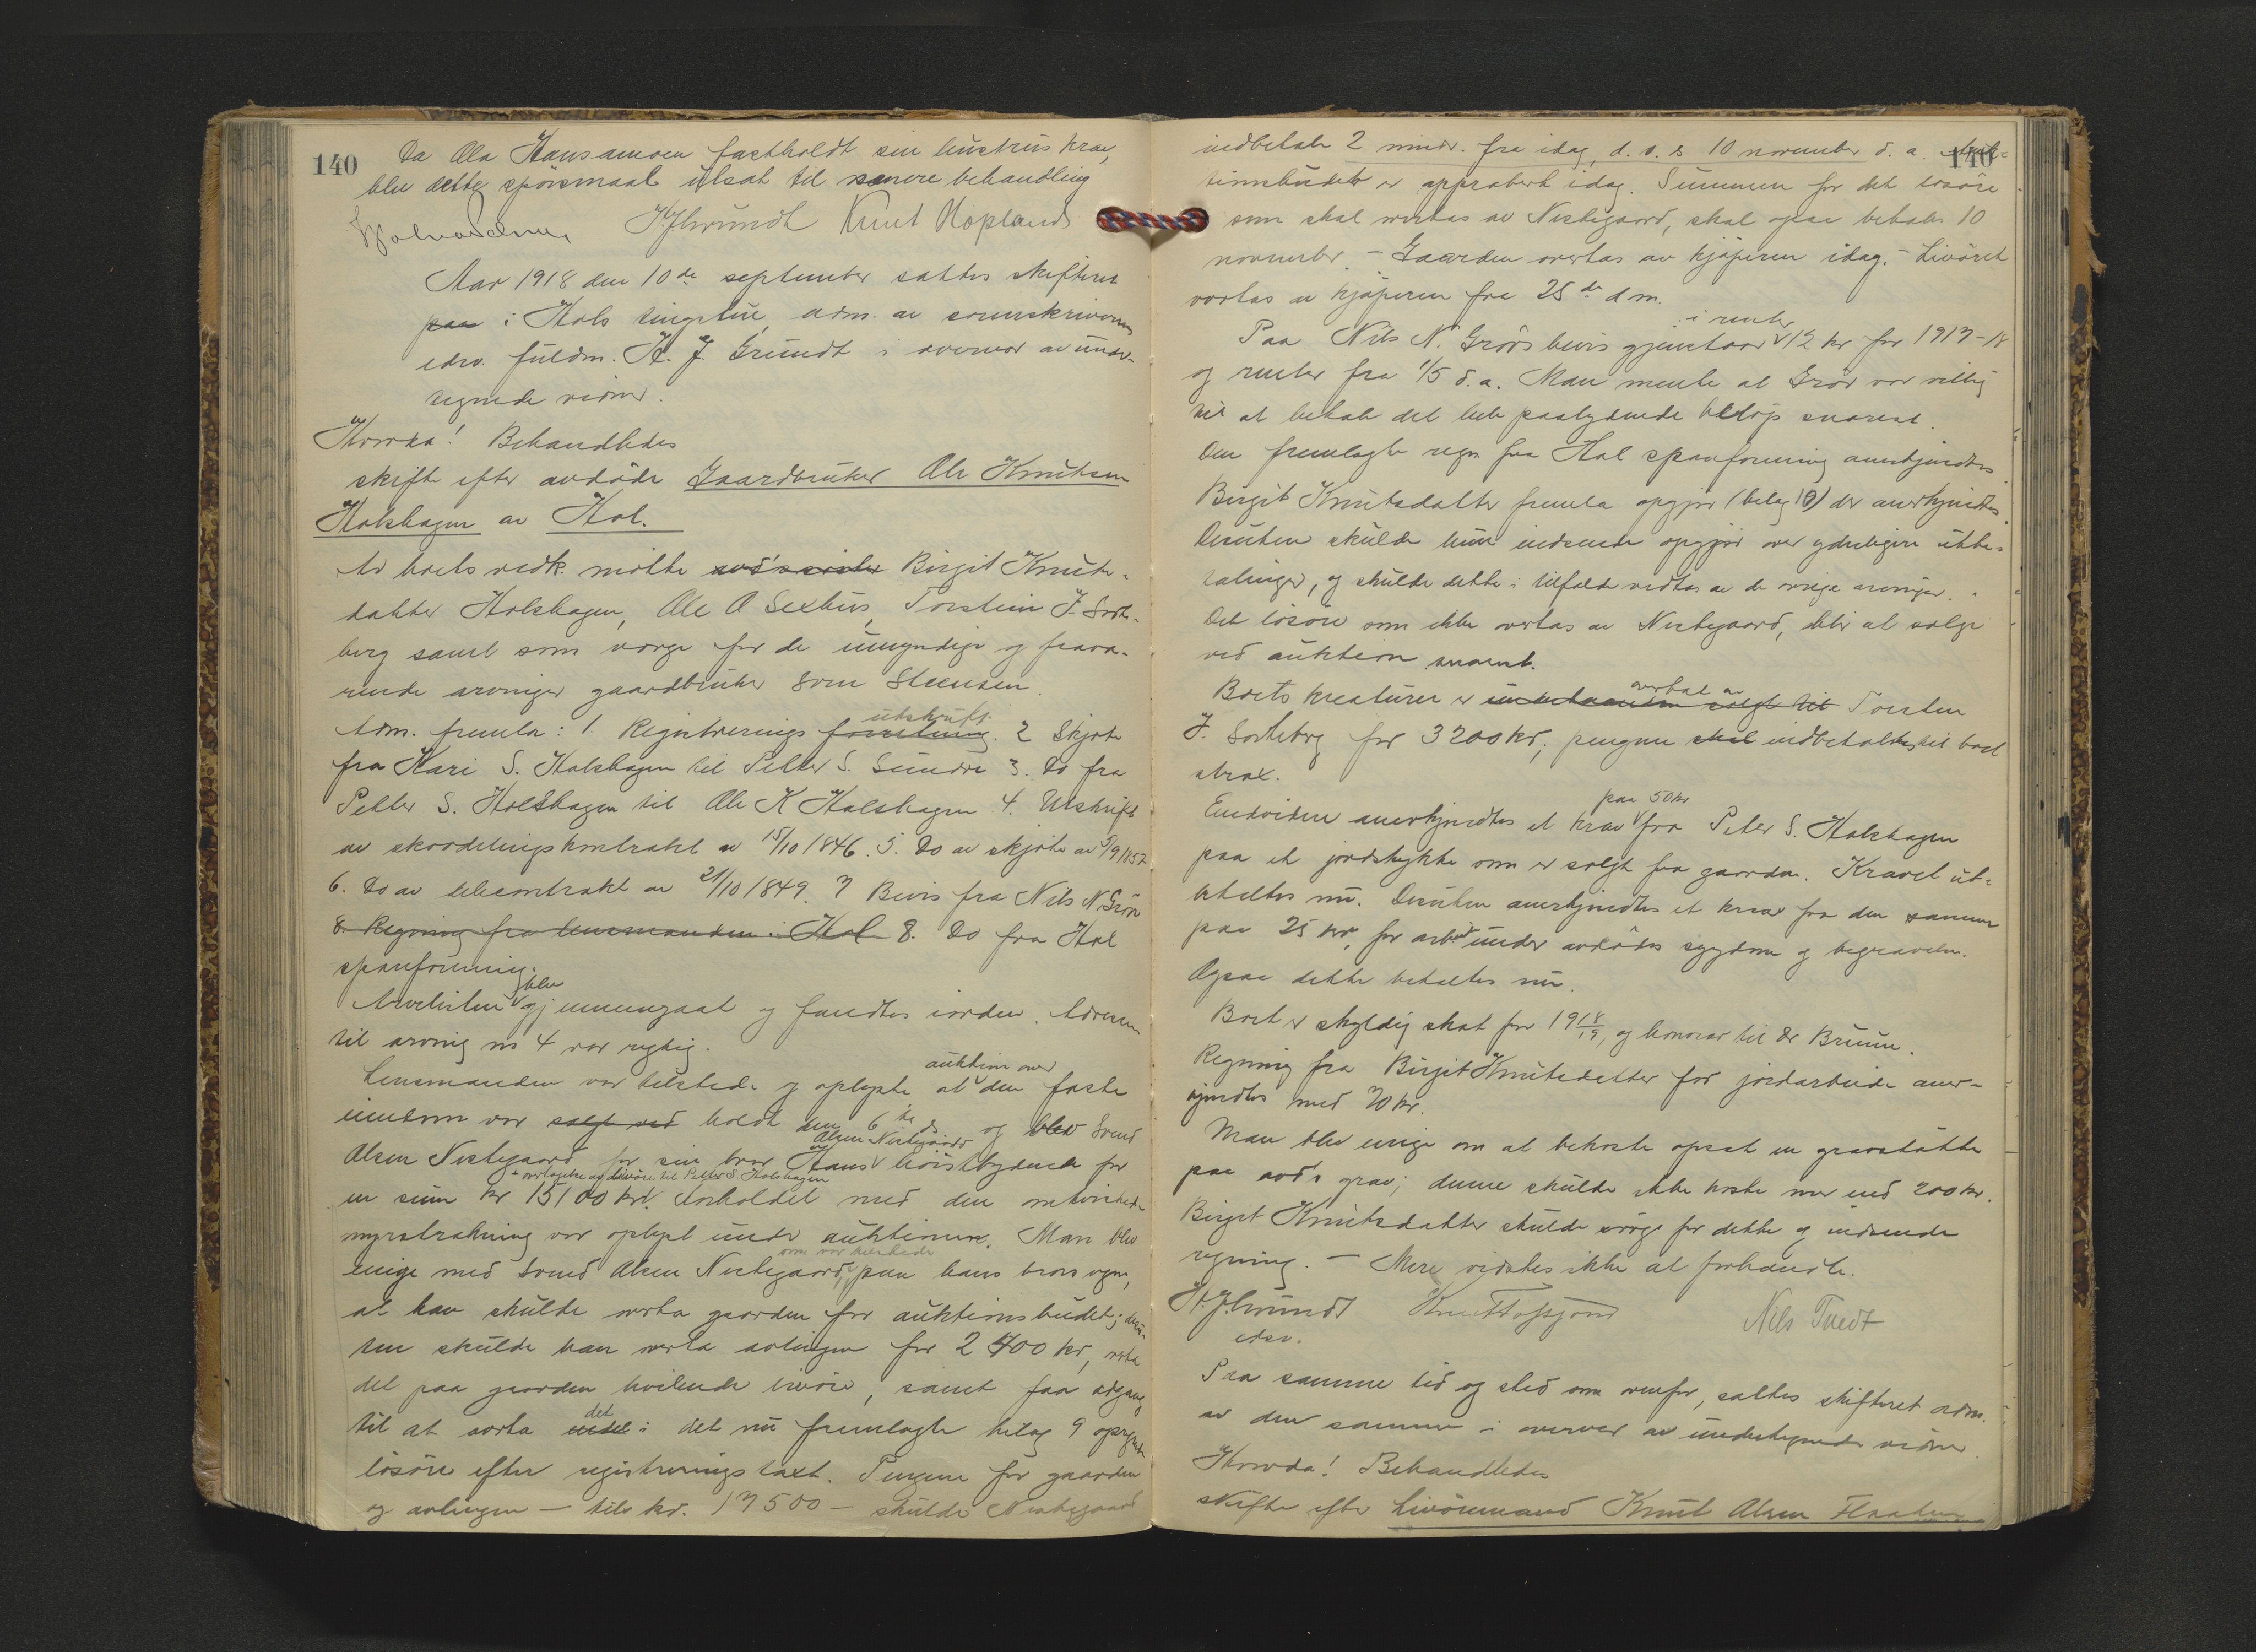 140
Da Ola Hansamoen fastholdt sin hustrus krav,
blev dette spörsmaal utsat til senere behandling
H. J. Grundt Knut Hopland
Aar 1918 den 10de september sattes skifteret
paa i Hols tingstue, adm. av sorenskriverens
edsv. fuldm. H. J. Grundt i overvær av under-
tegnede vidner.
Hvorda! Behandledes
skifte efter avdöde Gaardbruker Ole Knutsen
Holshagen av Hol.
Av boets vedk. mötte avd's söster Birgit Knuts-
datter Holshagen, Ole O Sexhus, Torstein J. Sorte-
berg samt som værge for de umyndige og fravæ-
rende arvinger gaardbruker Svem Steensen.
utskrift
Adm. fremla: 1. Registrerings forretning. 2 Skjöte
fra Kari S. Holshagen til Petter S. Sundre 3. Do fra
Petter S. Holshagen til Ole K Holshagen 4. Utskrift
av skovdelingskontrakt av 15/10 1846. 5. Do av skjöte av 5/9 1152
6. Do av leiecontrakt av 21/10 1849. 7 Bevis fra Nils N. Grön
8. Regning fra lensmanden i Hol 8. Do fra Hol
sparforening.
blev
Arvelisten gjennemgaat og fandtes iorden. Adressen
til arving no 4 var rigtig.
auktion over
Lensmanden var tilstede og oplyste at den faste
eiendom var solgt ved holdt den 6te ds og blev Svend
Olsen Nestegaard
Olsen Nestegaard for sin bror Hans höistbydende for
+ overtagelse av livöre til Petter S. Holshagen
en sum kr 15100 kr. Forholdet med den omtvistede
myrstrækning var oplyst under auktionen. Man blev
som var tilstede
enige med Svend Olsen Nestegaard, paa hans brors vegne,
at han skulde overta gaarden for auktionsbudet; desu-
ten skulde han overta avlingen for 2400 kr, overta
det paa gaarden hvilende livöre, samt faa adgang
det
til at overta endel i det nu fremlagte bilag 9 opregnede
lösöre efter registreringstaxt. Pengene for gaarden
og avlingen – tils kr. 17500 – skulde Nestegaard
140
indbetale 2 mndr. fra idag, d. v. s 10 november d. a. Auk-
tionsbudet er approbert idag. Summen for det lösöre
som skal overtas av Nestegaard, skal ogsaa betales 10
november. – Gaarden overtas av kjöperen idag. – Livöret
overtas av kjöperen fra 25de d m.
i renter
Paa Nils N. Gröns bevis gjenstaar 12 kr for 1917-18
og renter fra 1/5 d. a. Man mente at Grön var villig
til at betale det hele paalydende belöp snarest.
Den fremlagte regn fra Hol sparforening anerkjendtes.
Birgit Knutsdatter fremla opgjör (bilag 10) der anerkjendtes.
Desuten skulde hun indsende opgjör over yderligere utbe-
talinger, og skulde dette i tilfælde vedtas av de övrige arvinger.
Det lösöre som ikke overtas av Nestegaard, blir at sælge
ved auktion snarest.
overtat av
Boets kreaturer er underhaanden solgt til Torsten
J. Sorteberg for 3200 kr; pengene skal indbetaltes til boet
strax.
paa 50 kr
Endvidere anerkjendtes et krav fra Peter S. Holshagen
paa et jordstykke som er solgt fra gaarden. Kravet ut-
betaltes nu. Desuten anerkjendtes et krav fra den samme
paa 25 kr, for arbeid under avdödes sygdom og begravelse.
Ogsaa dette betaltes nu.
Boet er skyldig skat for 1918/19, og honorar til Dr Bruun.
Regning fra Birgit Knutsdatter for jordarbeide aner-
kjendtes med 70 kr.
Man blev enige om at bekoste opsat en gravstötte
paa avd's grav; denne skulde ikke koste mer end 200 kr.
Birgit Knutsdatter skulde sörge for dette og indsende
regning. – Mere vidstes ikke at forhandle.
H. J. Grundt Nils Tuedt
edsv.
Paa samme tid og sted som ovenfor, sattes skifteret adm.
av den samme i overvær av undertegnede vidner
Hvorda! Behandledes
skifte efter Livöremand Knut Olsen Flaaten